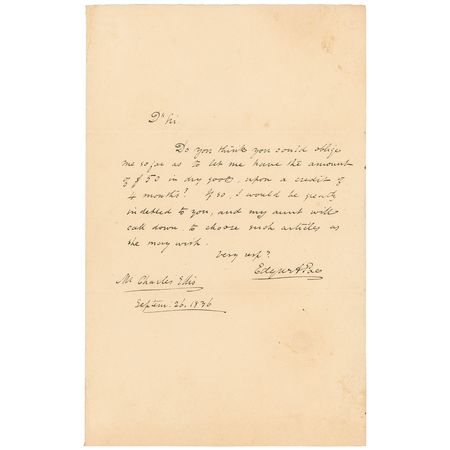 Dr Sir.
Do you think you could oblige
me so far as to let me have the amount
of $ 50 in dry goods, upon a credit of
4 months? If so, I would be greatly
indebted to you, and my aunt will
call down to choose such articles as
she may wish.
Very resp.y
Edgar A Poe
Mr Charles Ellis
Septem: 26. 1836